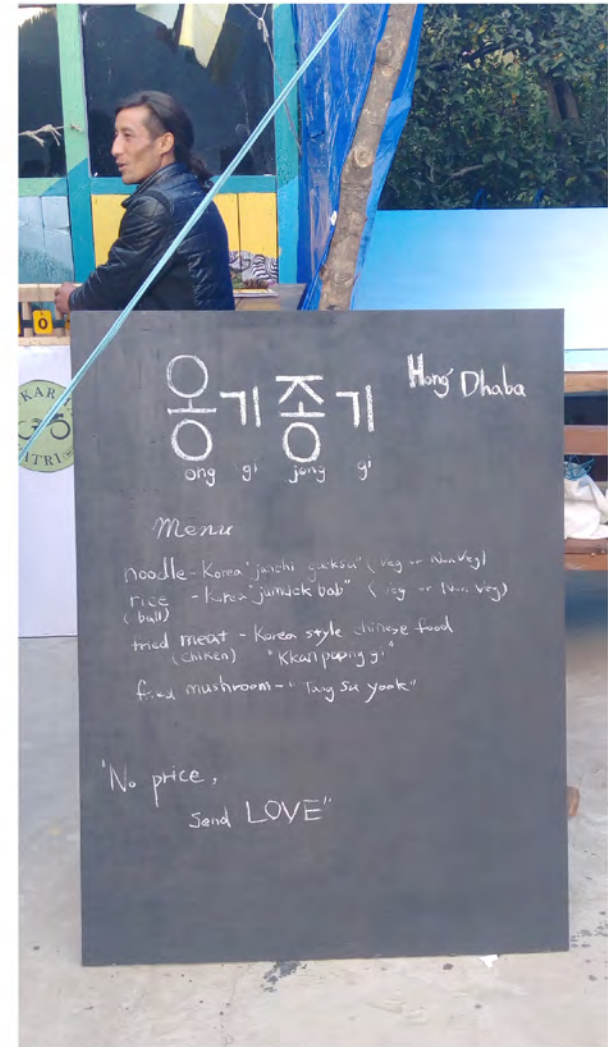 옹기종기
Hong Dhaba
ong gi jong gi
Menu
noodle - Korea "janchi guksu" (veg or Non Veg)
rice - Korea "jumuck bab" (veg or Non Veg)
(ball)
fried meat - Korea style chinese food
(chiken) "Kkan poong gi"
fried mushroom - "Tang Su yook"
"No price,
Send LOVE"
KAR
ATRI
0